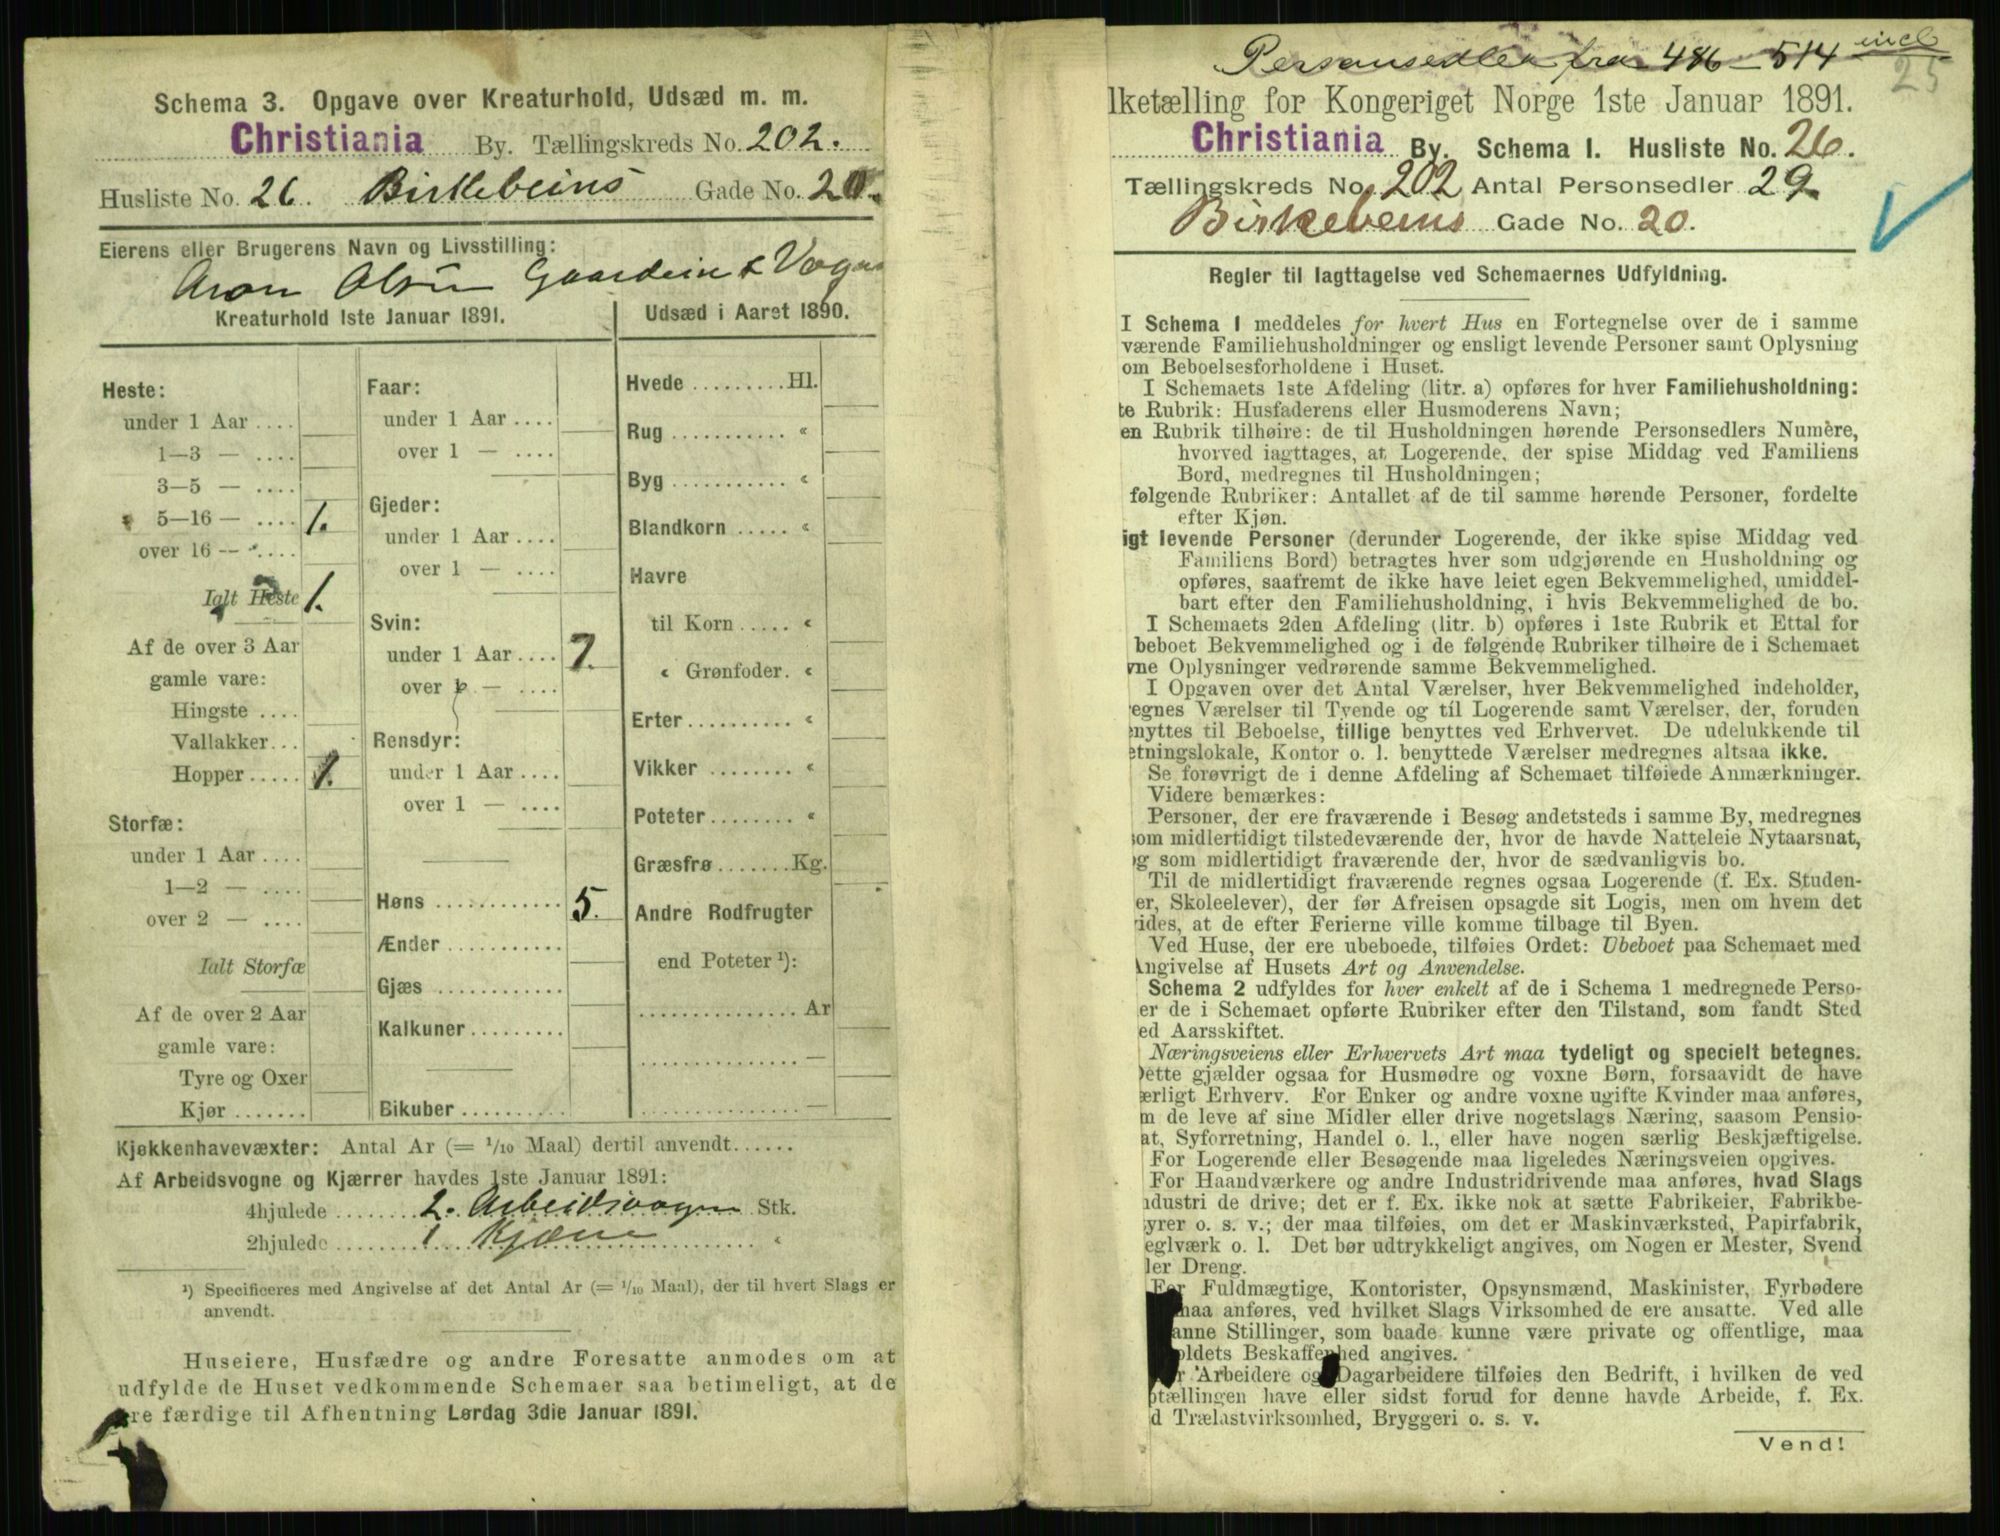 Schema 3. Opgave over Kreaturhold, Udsæd m. m.
Christiania By. Tællingskreds No. 202.
Husliste No. 26. Birkebeins Gade No. 20.
Eierens eller Brugerens Navn og Livsstilling:
Aron Olsen
Kreaturhold 1ste Januar 1891.
Heste:
under 1 Aar ....
1—3 — ....
3—5 — ....
5—16 — .... 1.
over 16 — ....
Ialt Heste 1.
Af de over 3 Aar
gamle vare:
Hingste ....
Vallakker...
Hopper ..... 1.
Storfæ:
under 1 Aar ....
1—2 — ....
over 2 — ....
Ialt Storfæ
Af de over 2 Aar
gamle vare:
Tyre og Oxer
Kjør .......
Faar:
under 1 Aar ....
over 1 — ....
Gjeder:
under 1 Aar ....
over 1 — ....
Svin:
under 1 Aar .... 7.
over 1 — ....
Rensdyr:
under 1 Aar ....
over 1 — ....
Høns ............ 5.
Ænder ...........
Gjæs ............
Kalkuner .........
Bikuber ..........
Udsæd i Aaret 1890.
Hvede .........Hl.
Rug ........... «
Byg ........... «
Blandkorn ..... «
Havre
til Korn ..... «
« Grønfoder. «
Erter.......... «
Vikker ........ «
Poteter........ «
Græsfrø .......Kg.
Andre Rodfrugter
end Poteter ¹):
...............Ar
............... —
............... —
Kjøkkenhavevæxter: Antal Ar (= 1/10 Maal) dertil anvendt......
Af Arbeidsvogne og Kjærrer havdes 1ste Januar 1891:
4hjulede ........ 2. Arbeidsvogne Stk.
2hjulede ........ 1 Kjærre «
¹) Specificeres med Angivelse af det Antal Ar (= 1/10 Maal), der til hvert Slags er
anvendt.
Huseiere, Husfædre og andre Foresatte anmodes om at
udfylde de Huset vedkommende Schemaer saa betimeligt, at de
ere færdige til Afhentning Lørdag 3die Januar 1891.
Personsedler fra 486 – 514 incl
25
lketælling for Kongeriget Norge 1ste Januar 1891.
Christiania By. Schema I. Husliste No. 26.
Tællingskreds No. 202 Antal Personsedler 29
Birkebeins Gade No. 20.
Regler til Iagttagelse ved Schemaernes Udfyldning.
I Schema 1 meddeles for hvert Hus en Fortegnelse over de i samme
værende Familiehusholdninger og ensligt levende Personer samt Oplysning
om Beboelsesforholdene i Huset.
I Schemaets 1ste Afdeling (litr. a) opføres for hver Familiehusholdning:
te Rubrik: Husfaderens eller Husmoderens Navn;
en Rubrik tilhøire: de til Husholdningen hørende Personsedlers Numere,
hvorved iagttages, at Logerende, der spise Middag ved Familiens
Bord, medregnes til Husholdningen;
følgende Rubriker: Antallet af de til samme hørende Personer, fordelte
efter Kjøn.
igt levende Personer (derunder Logerende, der ikke spise Middag ved
Familiens Bord) betragtes hver som udgjørende en Husholdning og
opføres, saafremt de ikke have leiet egen Bekvemmelighed, umiddel-
bart efter den Familiehusholdning, i hvis Bekvemmelighed de bo.
I Schemaets 2den Afdeling (litr. b) opføres i 1ste Rubrik et Ettal for
beboet Bekvemmelighed og i de følgende Rubriker tilhøire de i Schemaet
vne Oplysninger vedrørende samme Bekvemmelighed.
I Opgaven over det Antal Værelser, hver Bekvemmelighed indeholder,
egnes Værelser til Tyende og til Logerende samt Værelser, der, foruden
nyttes til Beboelse, tillige benyttes ved Erhvervet. De udelukkende til
etningslokale, Kontor o. l. benyttede Værelser medregnes altsaa ikke.
Se forøvrigt de i denne Afdeling af Schemaet tilføiede Anmærkninger.
Videre bemærkes:
Personer, der ere fraværende i Besøg andetsteds i samme By, medregnes
som midlertidigt tilstedeværende der, hvor de havde Natteleie Nytaarsnat,
og som midlertidigt fraværende der, hvor de sædvanligvis bo.
Til de midlertidigt fraværende regnes ogsaa Logerende (f. Ex. Studen-
er, Skoleelever), der før Afreisen opsagde sit Logis, men om hvem det
ides, at de efter Ferierne ville komme tilbage til Byen.
Ved Huse, der ere ubeboede, tilføies Ordet: Ubeboet paa Schemaet med
Angivelse af Husets Art og Anvendelse.
Schema 2 udfyldes for hver enkelt af de i Schema 1 medregnede Perso-
er de i Schemaet opførte Rubriker efter den Tilstand, som fandt Sted
ed Aarsskiftet.
Næringsveiens eller Erhvervets Art maa tydeligt og specielt betegnes.
Dette gjælder ogsaa for Husmødre og voxne Børn, forsaavidt de have
ærligt Erhverv. For Enker og andre voxne ugifte Kvinder maa anføres,
m de leve af sine Midler eller drive nogetslags Næring, saasom Pensio-
at, Syforretning, Handel o. l., eller have nogen særlig Beskjæftigelse.
For Logerende eller Besøgende maa ligeledes Næringsveien opgives.
For Haandværkere og andre Industridrivende maa anføres, hvad Slags
ndustri de drive; det er f. Ex. ikke nok at sætte Fabrikeier, Fabrikbe-
tyrer o. s. v.; der maa tilføies, om det er Maskinværksted, Papirfabrik,
eglværk o. l. Det bør udtrykkeligt angives, om Nogen er Mester, Svend
ler Dreng.
For Fuldmægtige, Kontorister, Opsynsmænd, Maskinister, Fyrbødere
maa anføres, ved hvilket Slags Virksomhed de ere ansatte. Ved alle
anne Stillinger, som baade kunne være private og offentlige, maa
oldets Beskaffenhed angives.
r Arbeidere og Dagarbeidere tilføies den Bedrift, i hvilken de ved
ptællingen have eller sidst forud for denne havde Arbeide, f. Ex.
d Trælastvirksomhed, Bryggeri o. s. v.
Vend!